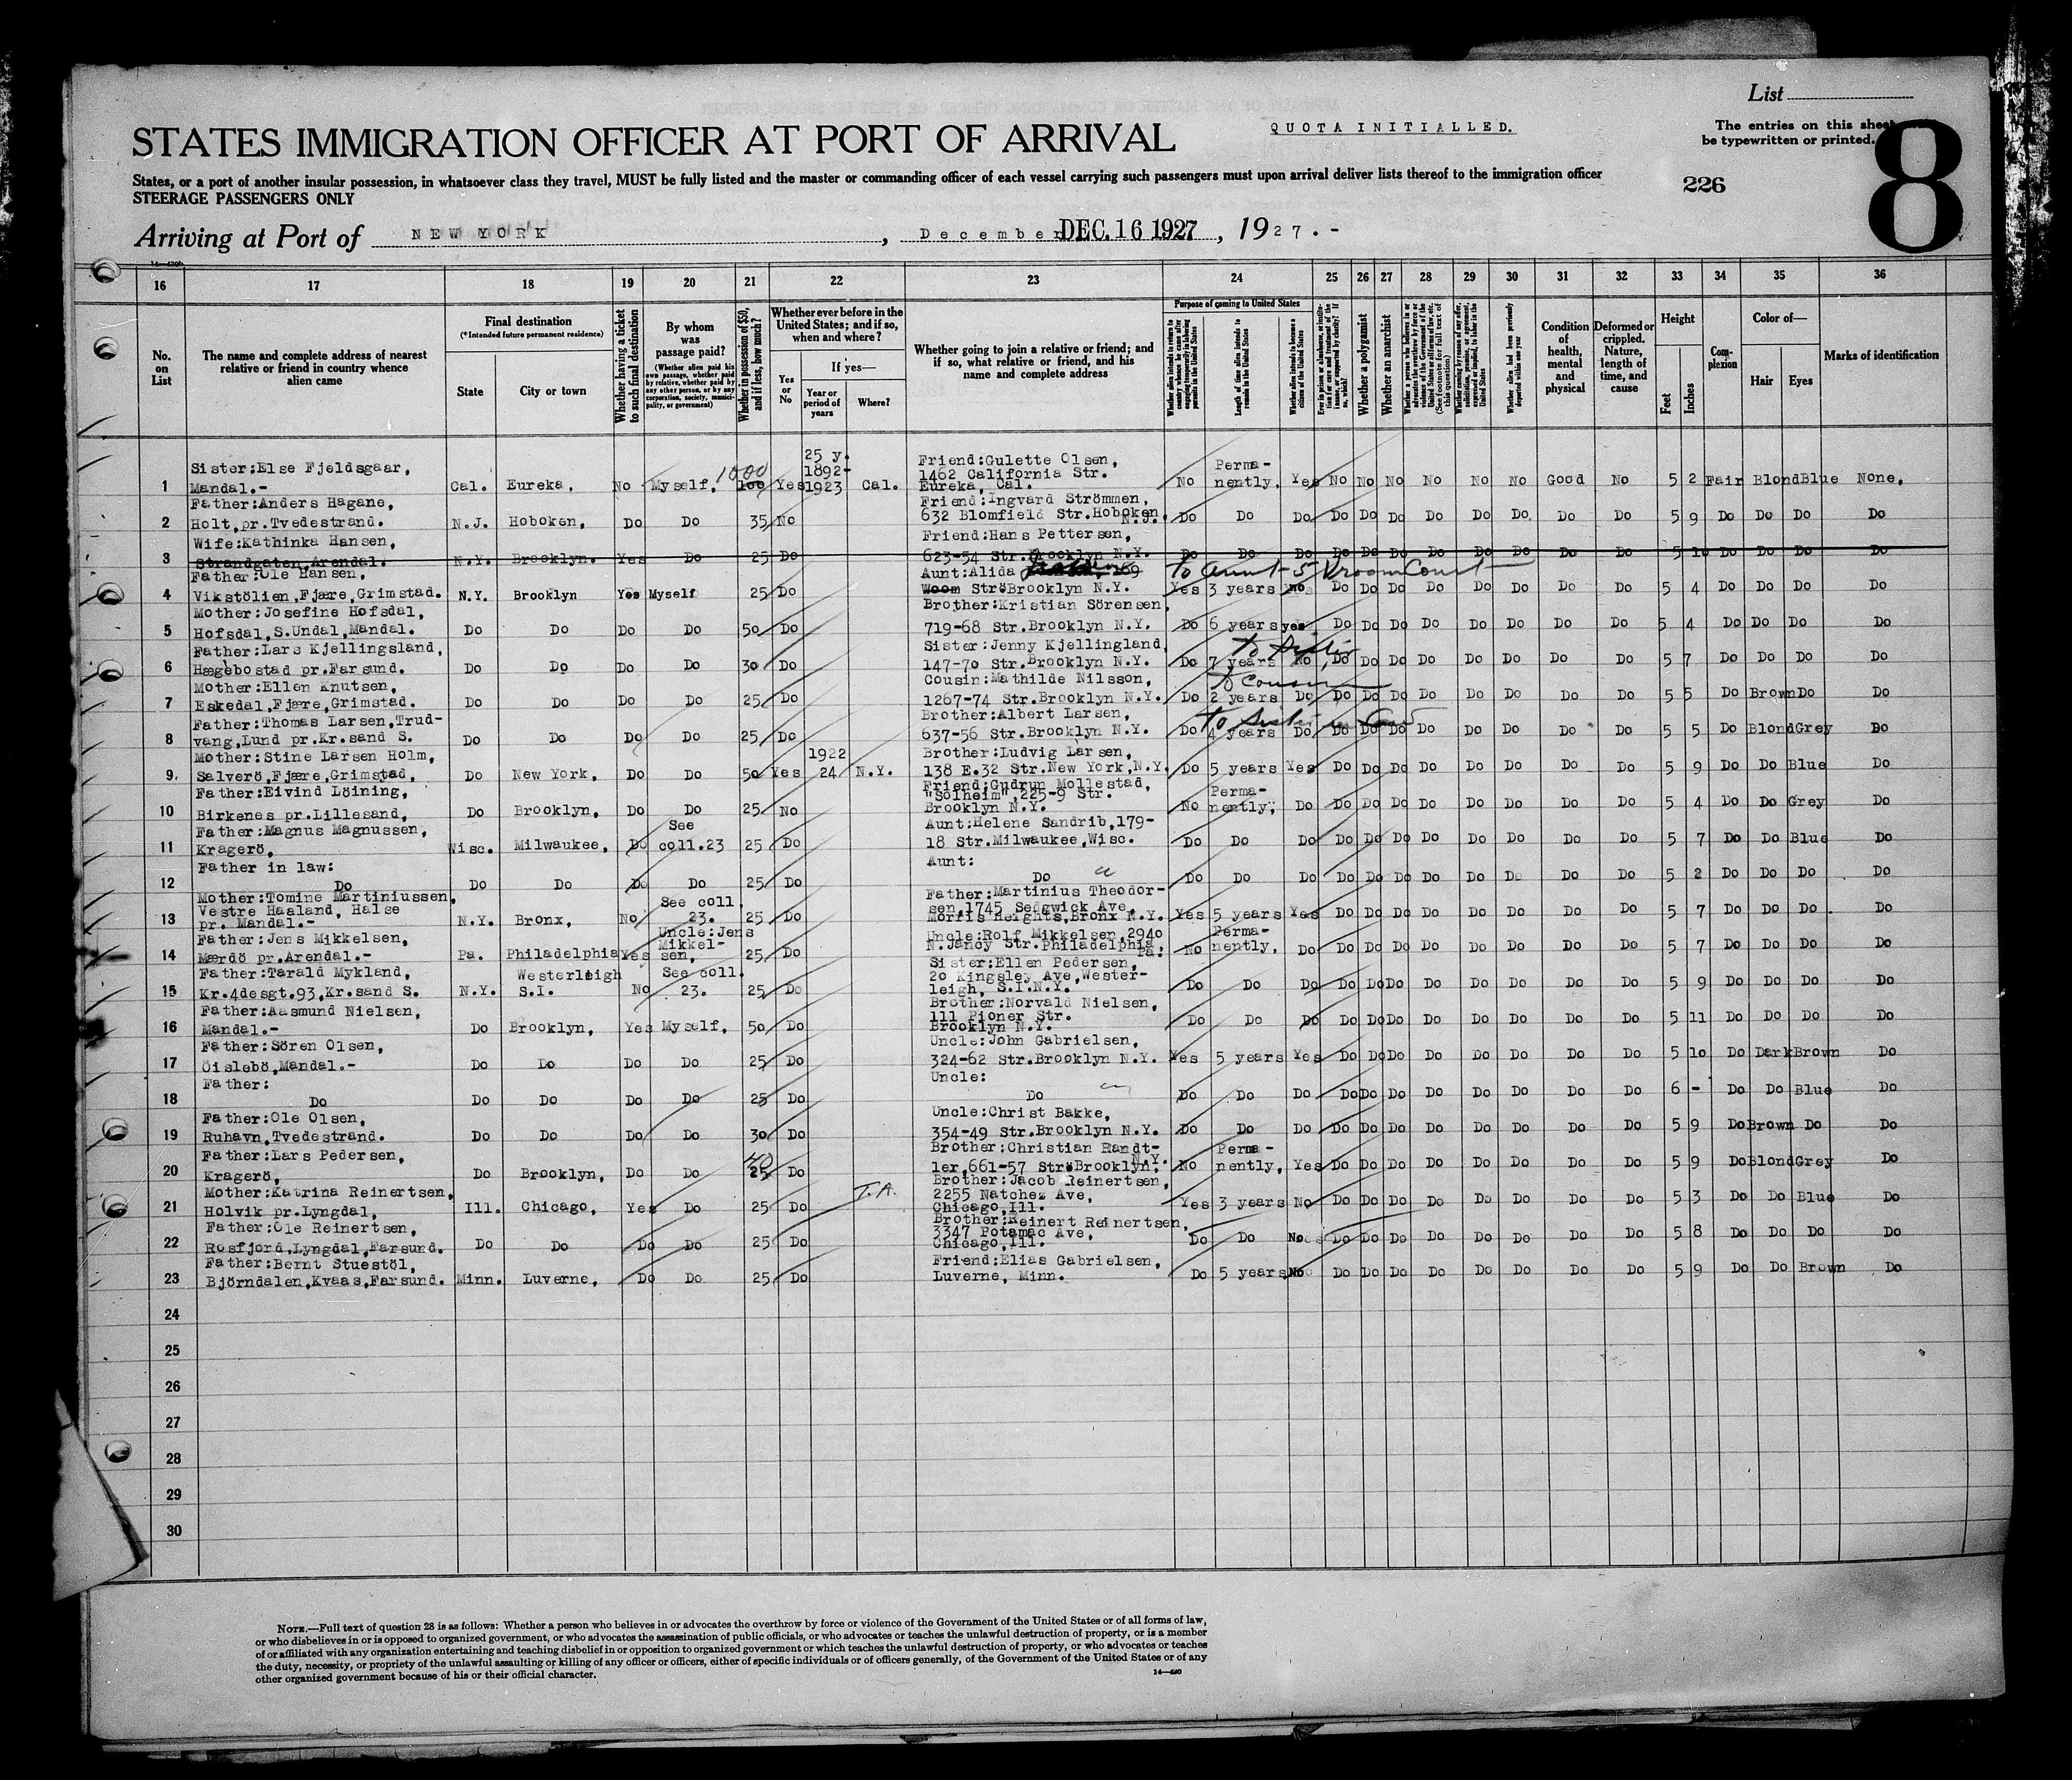 List
QUOTA INITIALLED.
The entries on this sheet
be typewritten or printed.
8
STATES IMMIGRATION OFFICER AT PORT OF ARRIVAL
States, or a port of another insular possession, in whatsoever class they travel, MUST be fully listed and the master or commanding officer of each vessel carrying such passengers must upon arrival deliver lists thereof to the immigration officer
STEERAGE PASSENGERS ONLY
226
Arriving at Port of NEW YORK, December DEC. 16 1927, 1927.-
16 17 18 19 20 21 22 23 24 25 26 27 28 29 30 31 32 33 34 35 36
No. on List
The name and complete address of nearest relative or friend in country whence alien came
Final destination
(*Intended future permanent residence)
State
City or town
Whether having a ticket to such final destination
By whom was passage paid?
(Whether alien paid his own passage, whether paid by relative, whether paid by any other person, or by any corporation, society, municipality, or government)
Whether in possession of $50, and if less, how much?
Whether ever before in the United States; and if so, when and where?
Yes or No
If yes—
Year or period of years
Where?
Whether going to join a relative or friend; and if so, what relative or friend, and his name and complete address
Purpose of coming to United States
Length of time alien intends to remain in the United States
Whether alien intends to become a citizen of the United States
Whether a polygamist
Whether an anarchist
Whether alien had been previously deported within one year
Condition of health, mental and physical
Deformed or crippled. Nature, length of time, and cause
Height
Feet
Inches
Complexion
Color of—
Hair
Eyes
Marks of identification
1 Sister:Else Fjeldsgaar, Mandal.- Cal. Eureka, No Myself, 1000 100 Yes 25 y. 1892-1923 Cal. Friend:Gulette Olsen, 1462 California Str. Eureka, Cal. No Permanently, Yes No No No No No No Good No 5 2 Fair Blond Blue None,
2 Father:Anders Hagane, Holt,pr.Tvedestrand. N.J. Hoboken, Do Do 35 No Friend:Ingvard Strömmen, 632 Blomfield Str.Hoboken, N.J. Do Do Do Do Do Do Do Do Do Do Do 5 9 Do Do Do Do
3 Wife:Kathinka Hansen, Strandgaten,Arendal. N.Y. Brooklyn. Yes Do 25 Do Friend:Hans Pettersen, 623-54 Str.Brooklyn N.Y. Do Do Do Do Do Do Do Do Do Do Do 5 10 Do Do Do Do
4 Father:Ole Hansen, Vikstölien,Fjære,Grimstad. N.Y. Brooklyn Yes Myself 25 Do Aunt:Alida 169 Woom Str Brooklyn N.Y. to aunt - 5 Vroom Court Yes 3 years no Do Do Do Do Do Do Do Do 5 4 Do Do Do Do
5 Mother:Josefine Hofsdal, Hofsdal,S.Undal,Mandal. Do Do Do Do 50 Do Brother:Kristian Sörensen, 719-68 Str.Brooklyn N.Y. Do 6 years yes Do Do Do Do Do Do Do Do 5 4 Do Do Do Do
6 Father:Lars Kjellingsland, Hægebostad pr.Farsund. Do Do Do Do 30 Do Sister:Jenny Kjellingland, 147-70 Str.Brooklyn N.Y. to Sister Do 7 years No Do Do Do Do Do Do Do Do 5 7 Do Do Do Do
7 Mother:Ellen Knutsen, Eskedal,Fjære,Grimstad. Do Do Do Do 25 Do Cousin:Mathilde Nilsson, 1267-74 Str.Brooklyn N.Y. to cousin Do 2 years Do Do Do Do Do Do Do Do Do 5 5 Do Brown Do Do
8 Father:Thomas Larsen,Trudvang,Lund pr.Kr.sand S. Do Do Do Do 25 Do Brother:Albert Larsen, 637-56 Str.Brooklyn N.Y. to sister in law Do 4 years Do Do Do Do Do Do Do Do Do 5 5 Do Blond Grey Do
9 Mother:Stine Larsen Holm, Salverö,Fjære,Grimstad, Do New York, Do Do 50 Yes 1922 24 N.Y. Brother:Ludvig Larsen, 138 E.32 Str.New York,N.Y. Do 5 years Yes Do Do Do Do Do Do Do Do 5 9 Do Do Blue Do
10 Father:Eivind Löining, Birkenes pr.Lillesand, Do Brooklyn, Do Do 25 No Friend:Gudrun Mollestad, "Solheim",225-9 Str. Brooklyn N.Y. No Permanently, Do Do Do Do Do Do Do Do Do 5 4 Do Do Grey Do
11 Father:Magnus Magnussen, Kragerö, Wisc. Milwaukee, Do See coll.23 25 Do Aunt:Helene Sandrib,179-18 Str.Milwaukee,Wisc. Do Do Do Do Do Do Do Do Do Do Do 5 7 Do Do Blue Do
12 Father in law: Do Do Do Do Do 25 Do Aunt: Do Do Do Do Do Do Do Do Do Do Do Do 5 2 Do Do Do Do
13 Mother:Tomine Martiniussen, Vestre Haaland, Halse pr. Mandal.- N.Y. Bronx, No See coll. 23. 25 Do Father:Martinius Theodorsen,1745 Sedgwick Ave, Morris Heights,Bronx N.Y. Yes 5 years Yes Do Do Do Do Do Do Do Do 5 7 Do Do Do Do
14 Father:Jens Mikkelsen, Mærdö pr.Arendal.- Pa. Philadelphia Yes Uncle:Jens Mikkelsen, 25 Do Uncle:Rolf Mikkelsen,2940 N.Jancy Str.Philadelphia, Pa. No Permanently, Do Do Do Do Do Do Do Do Do 5 7 Do Do Do Do
15 Father:Tarald Mykland, Kr.4desgt.93,Kr.sand S. N.Y. Westerleigh S.I. No See coll. 23. 25 Do Sister:Ellen Pedersen, 20 Kingsley Ave,Westerleigh, S.I.N.Y. Do Do Do Do Do Do Do Do Do Do Do 5 9 Do Do Do Do
16 Father:Aasmund Nielsen, Mandal.- Do Brooklyn, Yes Myself, 50 Do Brother:Norvald Nielsen, 111 Pioner Str. Brooklyn N.Y. Do Do Do Do Do Do Do Do Do Do Do 5 11 Do Do Do Do
17 Father:Sören Olsen, Öislebö,Mandal.- Do Do Do Do 25 Do Uncle:John Gabrielsen, 324-62 Str.Brooklyn N.Y. Yes 5 years Yes Do Do Do Do Do Do Do Do 5 10 Do Dark Brown Do
18 Father: Do Do Do Do Do 25 Do Uncle: Do Do Do Do Do Do Do Do Do Do Do Do 6 - Do Do Blue Do
19 Father:Ole Olsen, Ruhavn,Tvedestrand. Do Do Do Do 30 Do Uncle:Christ Bakke, 354-49 Str.Brooklyn N.Y. Do Do Do Do Do Do Do Do Do Do Do 5 9 Do Brown Do Do
20 Father:Lars Pedersen, Kragerö, Do Brooklyn, Do Do 40 25 Do Brother:Christian Randtler,661-57 Str Brooklyn, N.Y. No Permanently, Yes Do Do Do Do Do Do Do Do 5 9 Do Blond Grey Do
21 Mother:Katrina Reinertsen, Holvik pr.Lyngdal, Ill. Chicago, Yes Do 25 Do T.A. Brother:Jacob Reinertsen, 2255 Natchez Ave, Chicago,Ill. Yes 3 years No Do Do Do Do Do Do Do Do 5 3 Do Do Blue Do
22 Father:Ole Reinertsen, Rosfjord,Lyngdal,Farsund. Do Do Do Do 25 Do Brother:Reinert Reinertsen, 3347 Potamac Ave, Chicago,Ill. Do Do No Do Do Do Do Do Do Do Do 5 8 Do Do Do Do
23 Father:Bernt Stuestöl, Björndalen,Kvaas,Farsund. Minn. Luverne, Do Do 25 Do Friend:Elias Gabrielsen, Luverne, Minn. Do 5 years No Do Do Do Do Do Do Do Do 5 9 Do Do Brown Do
24
25
26
27
28
29
30
NOTE.—Full text of question 28 is as follows: Whether a person who believes in or advocates the overthrow by force or violence of the Government of the United States or of all forms of law,
or who disbelieves in or is opposed to organized government, or who advocates the assassination of public officials, or who advocates or teaches the unlawful destruction of property, or is a member
of or affiliated with any organization entertaining and teaching disbelief in or opposition to organized government or which teaches the unlawful destruction of property, or who advocates or teaches
the duty, necessity, or propriety of the unlawful assaulting or killing of any officer or officers, either of specific individuals or of officers generally, of the Government of the United States or of any
other organized government because of his or their official character.